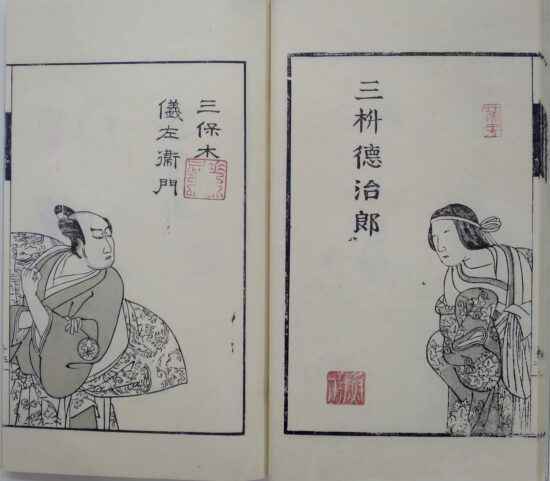 三枡德治郎
三保木
儀左衞門